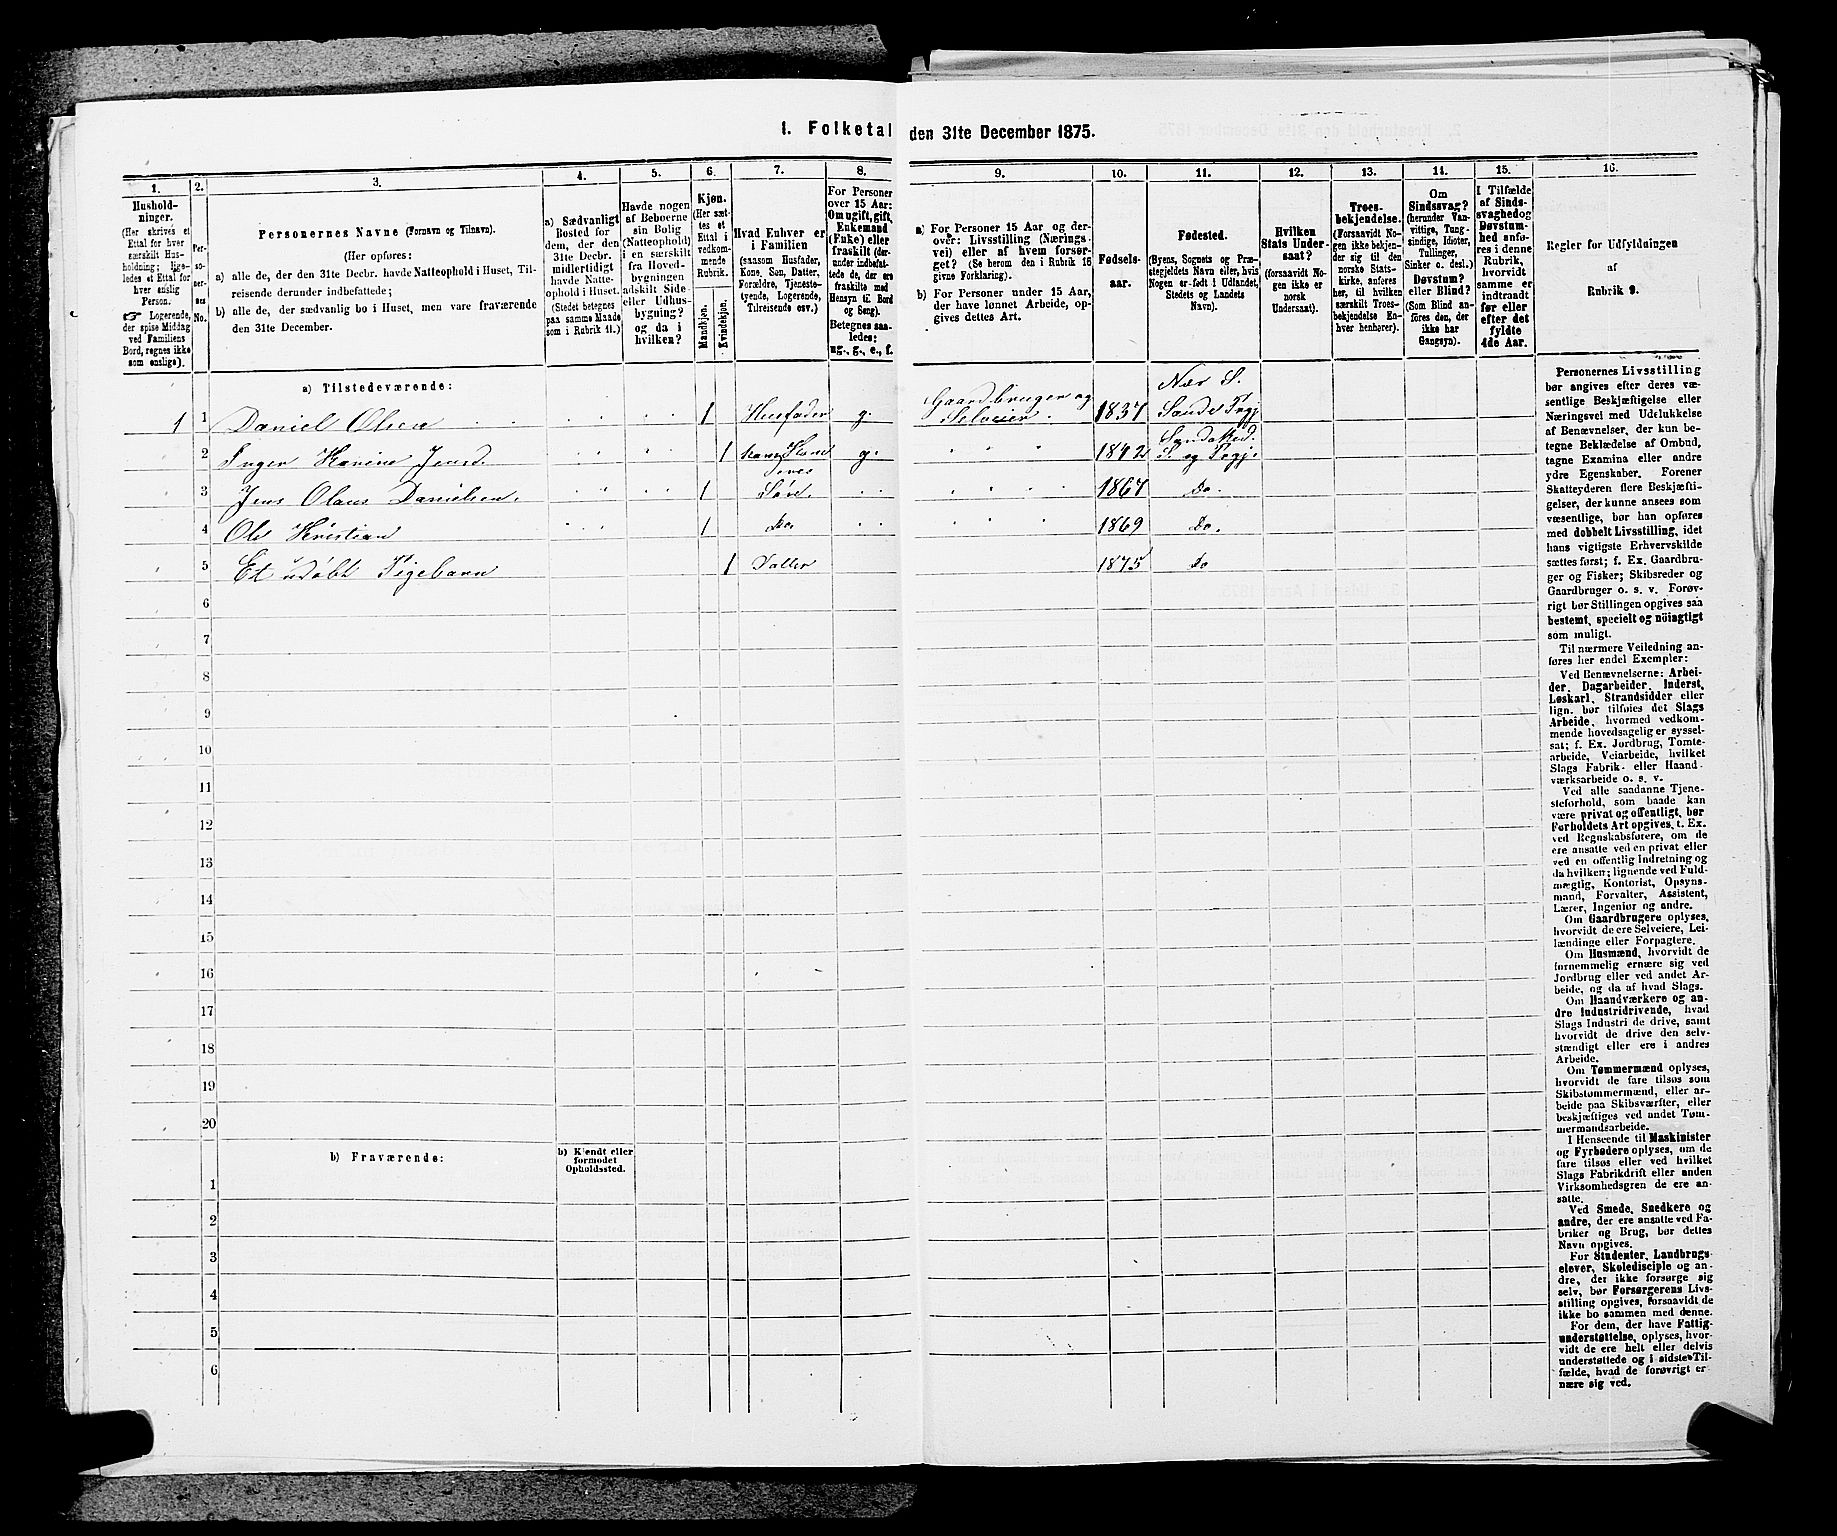 1. Folketal den 31te December 1875.
1.
2.
3.
4.
5.
6.
7.
8.
9.
10.
11.
12.
13.
14.
15.
16.
Husholdninger.
(Her skrives et
Ettal for hver
særskilt Husholdning;
ligeledes et Ettal for
hver enslig
Person.
☞ Logerende,
der spise Middag
ved Familiens
Bord, regnes ikke
som enslige).
Personernes No.
Personernes Navne (Fornavn og Tilnavn).
(Her opføres:
a) alle de, der den 31te Decbr. havde Natteophold i Huset, Tilreisende derunder indbefattede;
b) alle de, der sædvanlig bo i Huset, men vare fraværende
den 31te December.
a) Sædvanligt
Bosted for
dem, der den
31te Decbr.
midlertidigt
havde Natteophold i Huset.
(Stedet betegnes
paa samme Maade
som i Rubrik 11.)
Havde nogen
af Beboerne
sin Bolig
(Natteophold)
i en særskilt
fra Hovedbygningen
adskilt Side-
eller Udhusbygning?
og da i
hvilken?
Kjøn.
(Her sættes et
Ettal i
vedkommende
Rubrik.
Mandkjøn.
Kvindekjøn.
Hvad Enhver er
i Familien
(saasom Husfader,
Kone, Søn, Datter,
Forældre, Tjenestetyende, Logerende,
Tilreisende osv.)
For Personer
over 15 Aar:
Om ugift, gift,
Enkemand
(Enke) eller
fraskilt (derunder indbefattede, der ere
fraskilte med
Hensyn til Bord
og Seng).
Betegnes saaledes:
ug., g., e., f.
a) For Personer 15 Aar og derover: Livsstilling (Næringsvei) eller af hvem forsørget? (Se herom den i Rubrik 16
givne Forklaring).
b) For Personer under 15 Aar,
der have lønnet Arbeide, opgives dettes Art.
Fødselsaar.
Fødested.
(Byens, Sognets og Præstegjeldets Navn eller, hvis
Nogen er født i Udlandet,
Stedets og Landets
Navn).
Hvilken
Stats Undersaat?
(forsaavidt Nogen ikke er
norsk
Undersaat).
Troesbekjendelse.
(Forsaavidt Nogen ikke bekjender sig til den
norske Statskirke, anføres
her, til hvilken
særskilt Troesbekjendelse Enhver henhører).
Om
Sindssvag?
(herunder Vanvittige, Tungsindige, Idioter,
Tullinger,
Sinker o. desl.)
Døvstum?
eller Blind?
(Som Blind anføres den, der
ikke har
Gangsyn).
I Tilfælde
af Sindssvaghed og
Døvstumhed anføres i denne
Rubrik,
hvorvidt
samme er
indtraadt
før eller
efter det
fyldte
4de Aar.
Regler for Udfyldningen
af
Rubrik 9.
a) Tilstedeværende:
1 1 Daniel Olsen 1 Husfader g. Gaardbruger og Selveier. 1837 Nær S. Sande Prgj
2 Inger Karine Jensd. 1 hans Kone g. 1842 S. og Prgj.
3 Jens Olaus Danielsen. 1 Søn. 1867 Do.
4 Ole Kristian 1 Do. 1869 Do.
5 Et udøbt Pigebarn 1 Datter 1875 Do
6
7
8
9
10
11
12
13
14
15
16
17
18
19
20
b) Fraværende:
b) Kjendt eller
formodet
Opholdssted.
1
2
3
4
5
6
Personernes Livsstilling
bør angives efter deres væsentlige Beskjæftigelse eller
Næringsvei med Udelukkelse
af Benævnelser, der kun betegne Beklædelse af Ombud,
tagne Examina eller andre
ydre Egenskaber. Forener
Skatteyderen flere Beskjæftigelser, der kunne ansees som
væsentlige, bør han opføres
med dobbelt Livsstilling, idet
hans vigtigste Erhvervskilde
sættes først; f. Ex. Gaardbruger og Fisker; Skibsreder og
Gaardbruger o. s. v. Forøvrigt bør Stillingen opgives saa
bestemt, specielt og nöiagtigt
som muligt.
Til nærmere Veiledning anføres her endel Exempler:
Ved Benævnelserne: Arbeider, Dagarbeider, Inderst,
Løskarl, Strandsidder eller
lign. bør tilføies det Slags
Arbeide, hvormed vedkommende hovedsagelig er sysselsat; f. Ex. Jordbrug, Tomtearbeide, Veiarbeide, hvilket
Slags Fabrik- eller Haandværksarbeide o. s. v.
Ved alle saadanne Tjenesteforhold, som baade kan
være privat og offentligt, bør
Forholdets Art opgives, t. Ex.
ved Regnskabsførere, om de
ere ansatte ved en privat eller
ved en offentlig Indretning og
da hvilken; lignende ved Fuldmægtig, Kontorist, Opsynsmand, Forvalter, Assistent,
Lærer, Ingeniør og andre.
Om Gaardbrugere oplyses,
hvorvidt de ere Selveiere, Leilændinge eller Forpagtere.
Om Husmænd, hvorvidt de
fornemmelig ernære sig ved
Jordbrug eller ved andet Arbeide, og da af hvad Slags.
Om Haandværkere og andre Industridrivende, hvad
Slags Industri de drive, samt
hvorvidt de drive den selvstændigt eller ere i andres
Arbeide.
Om Tømmermænd oplyses,
hvorvidt de fare tilsøs som
Skibstømmermænd, eller arbeide paa Skibsværfter, eller
beskjæftiges ved andet Tømmermandsarbeide.
I Henseende til Maskinister
og Fyrbødere oplyses, om de
fare tilsøs eller ved hvilket
Slags Fabrikdrift eller anden
Virksomhedsgren de ere ansatte.
Ved Smede, Snedkere og
andre, der ere ansatte ved Fabriker og Brug, bør dettes
Navn opgives.
For Studenter, Landbrugselever, Skoledisciple og andre, der ikke forsørge sig
selv, bør Forsørgerens Livsstilling opgives, forsaavidt de
ikke bo sammen med denne.
For dem, der have Fattigunderstøttelse, oplyses, hvorvidt de ere helt eller delvis
understøttede og i sidste Tilfælde, hvad de forøvrigt ernære sig ved.